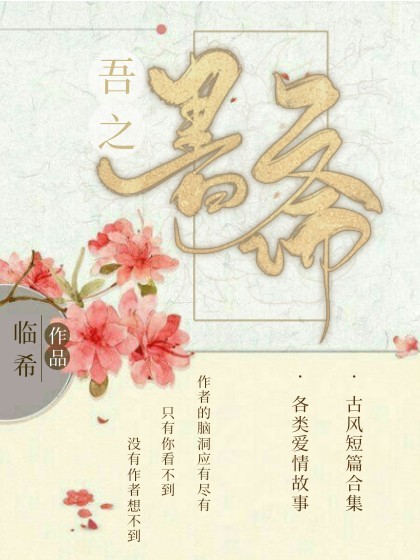 吾之
書斋
临希
作品
·古风短篇合集
·各类爱情故事
作者的脑洞应有尽有
只有你看不到
没有作者想不到